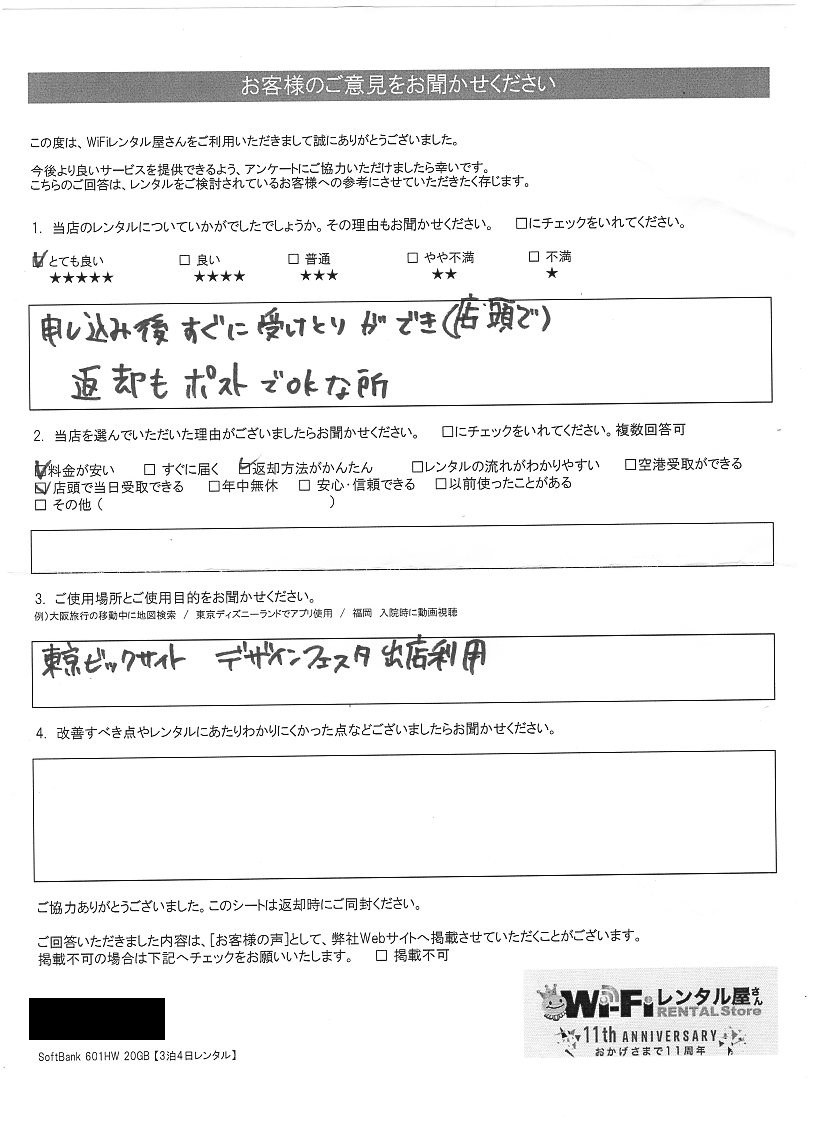 お客様のご意見をお聞かせください
この度は、WiFiレンタル屋さんをご利用いただきまして誠にありがとうございました。
今後より良いサービスを提供できるよう、アンケートにご協力いただけましたら幸いです。
こちらのご回答は、レンタルをご検討されているお客様への参考にさせていただきたく存じます。
1. 当店のレンタルについていかがでしたでしょうか。その理由もお聞かせください。 □にチェックをいれてください。
☑ とても良い □ 良い □ 普通 □ やや不満 □ 不満
★★★★★ ★★★★ ★★★ ★★ ★
申し込み後 すぐに 受けとり が でき(店頭で)
返却も ポストでOKな所
2. 当店を選んでいただいた理由がございましたらお聞かせください。 □にチェックをいれてください。複数回答可
☑料金が安い □ すぐに届く ☑返却方法がかんたん □レンタルの流れがわかりやすい □空港受取ができる
☑店頭で当日受取できる □年中無休 □ 安心・信頼できる □以前使ったことがある
□ その他 ( )
3. ご使用場所とご使用目的をお聞かせください。
例)大阪旅行の移動中に地図検索 / 東京ディズニーランドでアプリ使用 / 福岡 入院時に動画視聴
東京ビックサイト デザインフェスタ出店利用
4. 改善すべき点やレンタルにあたりわかりにくかった点などございましたらお聞かせください。
ご協力ありがとうございました。このシートは返却時にご同封ください。
ご回答いただきました内容は、[お客様の声]として、弊社Webサイトへ掲載させていただくことがございます。
掲載不可の場合は下記へチェックをお願いいたします。 □ 掲載不可
Wi-Fiレンタル屋さん
RENTAL Store
11th ANNIVERSARY
おかげさまで11周年
SoftBank 601HW 20GB【3泊4日レンタル】